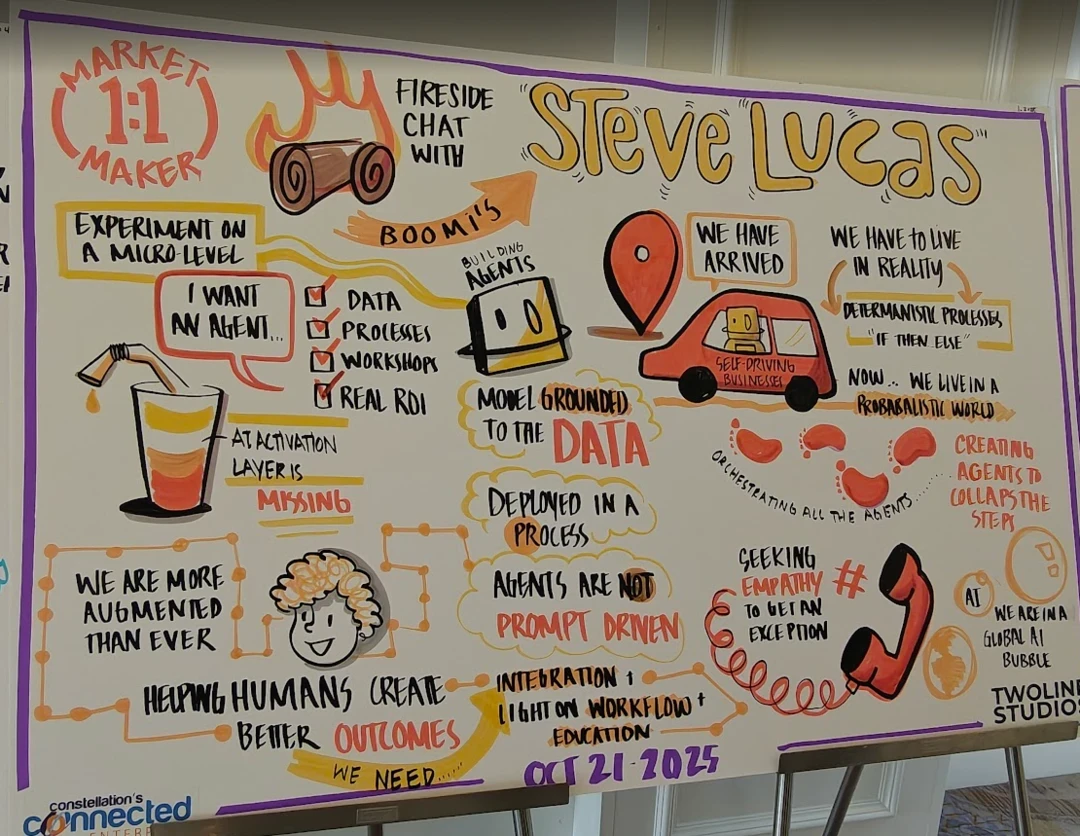 MARKET
1:1
MAKER
FIRESIDE
CHAT
WITH
STEVE LUCAS
BOOMI'S
EXPERIMENT ON
A MICRO-LEVEL
I WANT
AN AGENT...
DATA
PROCESSES
WORKSHOPS
REAL ROI
BUILDING
AGENTS
WE HAVE
ARRIVED
SELF-DRIVING
BUSINESSES
WE HAVE TO LIVE
IN REALITY
DETERMANISTIC PROCESSES
"IF THEN ELSE"
NOW... WE LIVE IN A
PROBABALISTIC WORLD
AT ACTIVATION
LAYER IS
MISSING
MODEL GROUNDED
TO THE DATA
DEPLOYED IN A
PROCESS
AGENTS ARE NOT
PROMPT DRIVEN
ORCHESTRATING ALL THE AGENTS......
CREATING
AGENTS TO
COLLAPS THE
STEPS
WE ARE MORE
AUGMENTED
THAN EVER
HELPING HUMANS CREATE
BETTER OUTCOMES
WE NEED.....
INTEGRATION +
LIGHT ON WORKFLOW +
EDUCATION
SEEKING
EMPATHY #
TO GET AN
EXCEPTION
AI
WE ARE IN A
GLOBAL AI
BUBBLE
TWOLINE
STUDIOS
OCT 21-2025
constellation's
connected